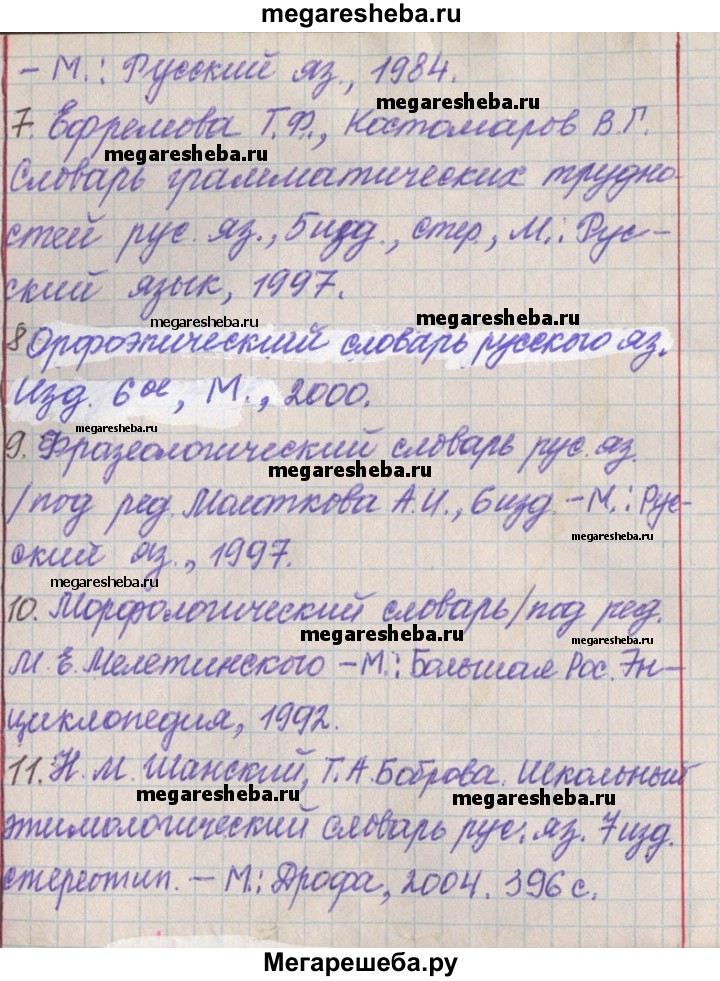 megaresheba.ru
- М.: Русский яз., 1984.
megaresheba.ru
7. Ефремова Т.Ф., Костомаров В.Г.
megaresheba.ru
Словарь грамматических трудно-
стей рус. яз., 5изд., стер., М.: Рус-
ский язык, 1997.
megaresheba.ru
megaresheba.ru
8 Орфоэпический словарь русского яз.
Изд. 6ое, М., 2000.
megaresheba.ru
9. Фразеологический словарь рус. яз.
megaresheba.ru
/под ред. Молоткова А.И., 6изд. - М.: Рус-
megaresheba.ru
ский яз., 1997.
megaresheba.ru
10. Морфологический словарь/под ред.
megaresheba.ru
megaresheba.ru
М.Е. Мелетинского - М.: Большая Рос. Эн-
циклопедия, 1992.
11. Н.М. Шанский, Т.А. Боброва. Школьный
megaresheba.ru
megaresheba.ru
этимологический словарь рус. яз. 7изд.
стереотип. - М.: Дрофа, 2004. 396 с.
Мегарешеба.ру